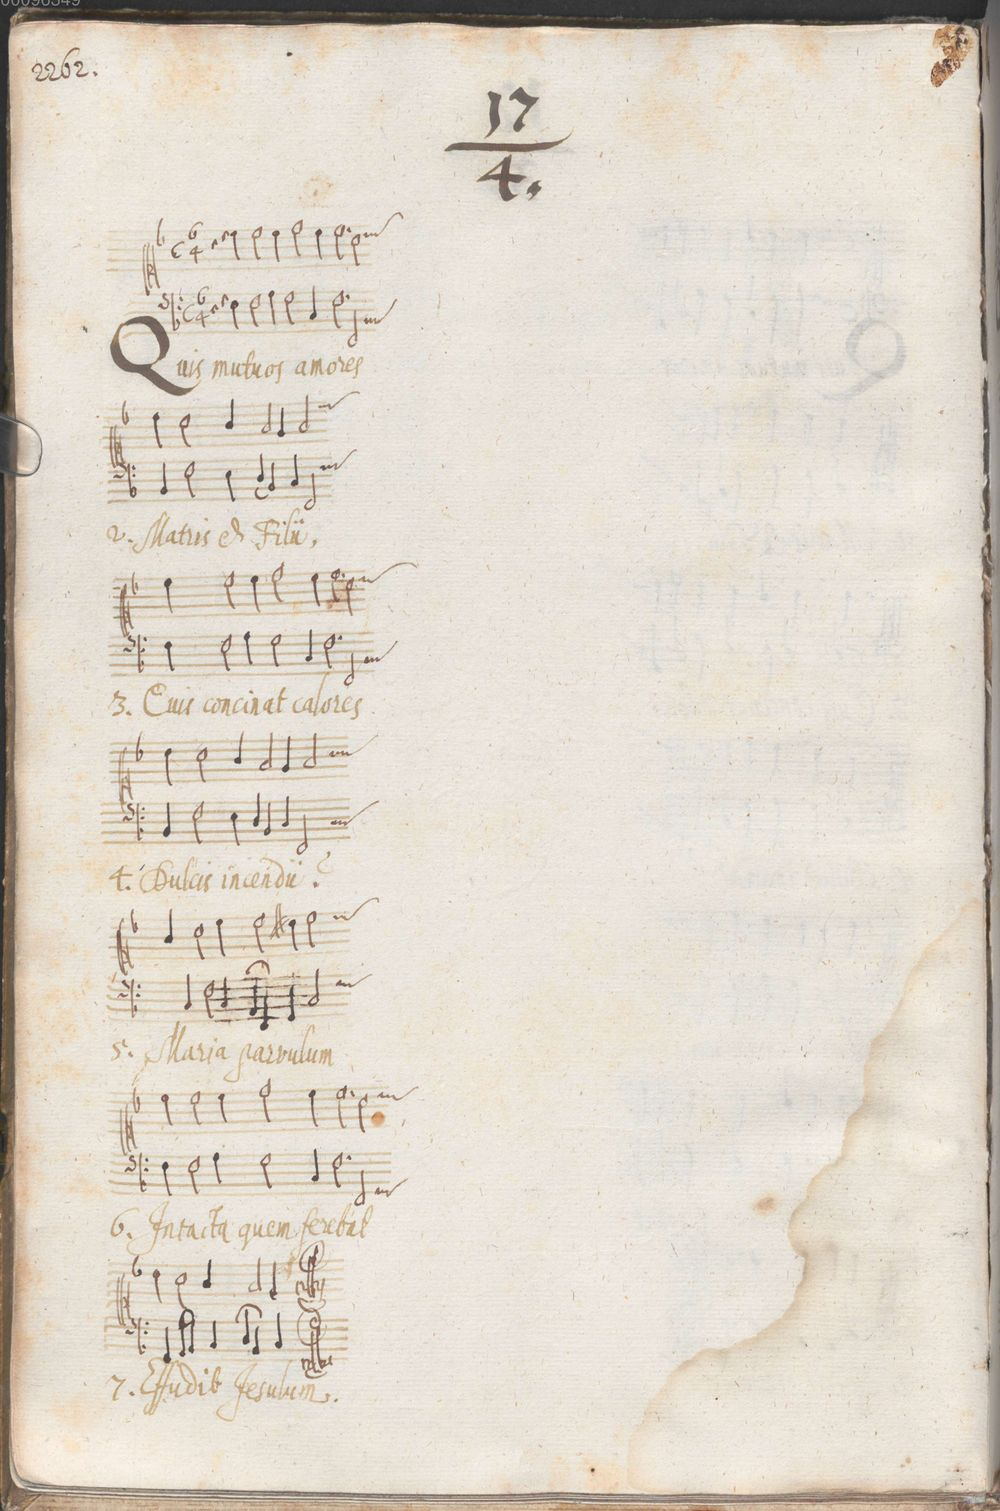 00096549
2262.
17
4.
Quis mutuos amores
2. Matris et Filii,
3. Quis concinat calores
4. Dulcis incendii?
5. Maria parvulum
6. Intacta quem ferebat
7. Effudit Jesulum.